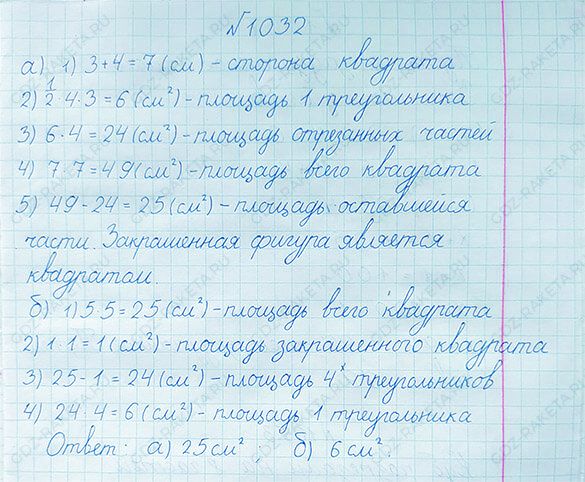 №1032
а) 1) 3+4=7(см) – сторона квадрата
2) 1/2·4·3=6(см²) – площадь 1 треугольника
3) 6·4=24(см²) – площадь отрезанных частей
4) 7·7=49(см²) – площадь всего квадрата
5) 49-24=25(см²) – площадь оставшейся
части. Закрашенная фигура является
квадратом.
б) 1) 5·5=25(см²) – площадь всего квадрата
2) 1·1=1(см²) – площадь закрашенного квадрата
3) 25-1=24(см²) – площадь 4ˣ треугольников
4) 24:4=6(см²) – площадь 1 треугольника
Ответ: а) 25см²; б) 6см².
GDZ-RAKETA.RU